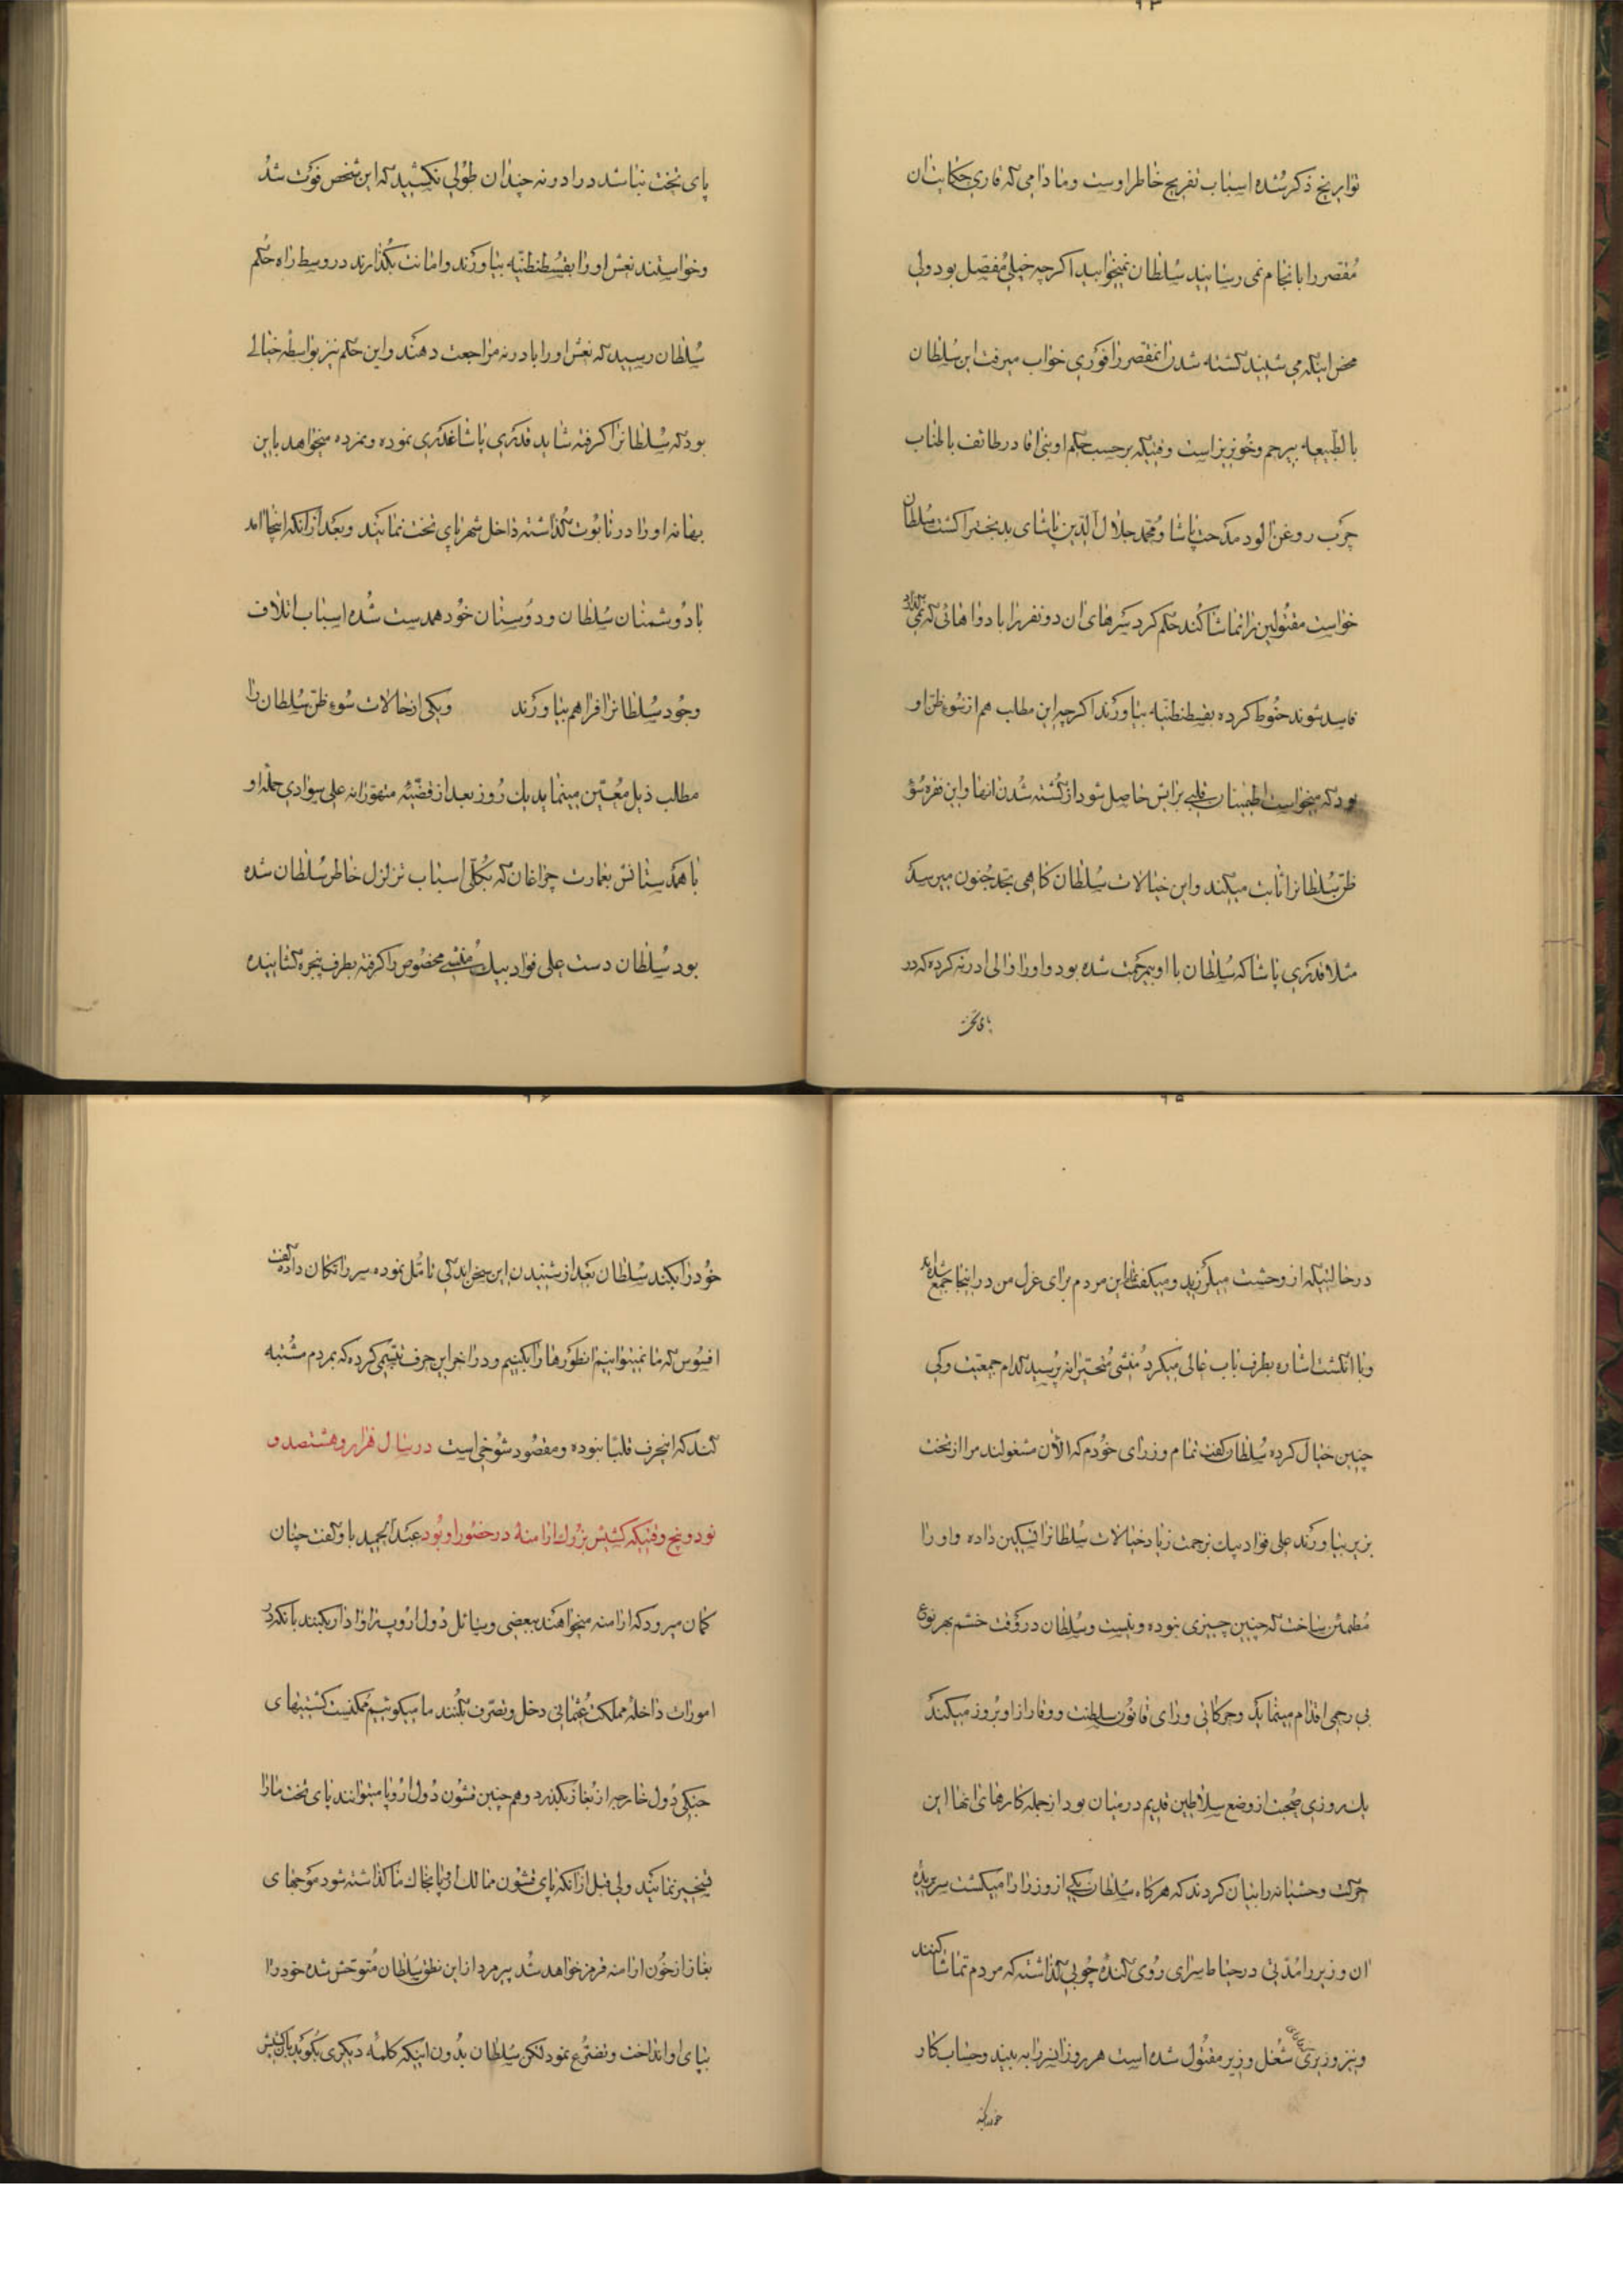 ۹۳
توابریخ ذکر شده اسباب تفریح خاطر اوست و مادامی که قاری حکایت ان
مقصر را بانجام نمی رسانید سلطان نمیخوابید اکرچه خیلی مفصل بود ولی
محض اینکه می شنید کشته شدن انمقصر را فوری خواب میرفت این سلطان
بالطبیعه بیرحم و خونریز است وقتیکه بر حسب حکم او بنی اقا در طائف با طناب
چرب روغن الود مدحت پاشا و محمد جلال الدین پاشای بدبخترا کشت سلطان
خواست مقتولین را تماشا کند حکم کرد سرهای ان دو نفر را با دواهائی که نمی‌گذارد
فاسد شوند حنوط کرده بقسطنطنیه بیاورند اکرچه این مطالب هم از سوء ظن او
بود که میخواست اطمینان قلبی برایش حاصل شود از کشته شدن انها و این فقره سوء
ظن سلطانرا ثابت میکند و این خیالات سلطان کاهی بحد جنون میرسد
مثلا قدری پاشا که سلطان با او بیمرحمت شده بود و او را والی ادرنه کرده که در
پای تخت
پای تخت نباشد در ادرنه چندان طولی نکشید که این شخص فوت شد
و خواستند نعش او را بقسطنطنیه بیاورند و امانت بکذارند در وسط راه حکم
سلطان رسید که نعش او را بادرنه مراجعت دهند و این حکم نیز بواسطه خیالی
بود که سلطانرا کرفته شاید قدری پاشا غدری نموده و نمرده میخواهد باین
بهانه او را در تابوت کذاشته داخل شهر پای تخت نمایند و بعد از انکه اینجا امد
با دوشمنان سلطان و دوستان خود همدست شده اسباب اتلاف
وجود سلطانرا فراهم بیاورند و یکی از حالات سوء ظن سلطان را
مطلب ذیل معین مینماید یک روز بعد از قضیه متهورانه علی سواوی حمله او
با همدستانش بعمارت چراغان که بکلی اسباب تزلزل خاطر سلطان شده
بود سلطان دست علی فواد بیک منشی مخصوص را کرفته بطرف پنجره کشانیده
۹۵
در حالتیکه از وحشت میلرزید و میکفت این مردم برای عزل من در اینجا جمع شده‌اند
و با انکشت اشاره بطرف باب عالی میکرد منشی متحیرانه پرسید کدام جمعیت و کی
چنین خیال کرده سلطان کفت تمام وزرای خودم که الآن مشغولند مرا از تخت
بزیر بیاورند علی فواد بیک بزحمت زیاد خیالات سلطانرا تسکین داده و او را
مطمئن ساخت که چنین چیزی نبوده و نیست و سلطان در وقت خشم بهر نوع
بی رحمی اقدام مینماید و حرکاتی ورای قانون سلطنت و وقار از او بروز میکند
یک روزی صحبت از وضع سلاطین قدیم در میان بود از جمله کارهای انها این
حرکت وحشیانه را بیان کردند که هرکاه سلطان یکی از وزرا را میکشت سر بریده
ان وزیر را مدتی در حیاط سرای روی کنده چوبی کذاشته که مردم تماشا کنند
و نیز وزیری شغل وزیر مقتول شده است هر روز ان سر را به بیند و حساب کار
خود را بکند
۹۶
خود را بکند سلطان بعد از شنیدن این سخن اندکی تامل نموده سر را تکان داده کفت
افسوس که ما نمیتوانیم انطورها را بکنیم و در اخر این حرف تبسمی کرده که بمردم مشتبه
کند که اینحرف قلبا نبوده و مقصود شوخی است در سال هزار و هشتصد و
نود و پنج وقتیکه کشیش بزرک ارامنه در حضور او بود عبد الحمید باو کفت چنان
کمان میرود که ارامنه میخواهند ببعضی وسائل دول اروپ را وادار بکنند بانکه در
امورات داخله مملکت عثمانی دخل و تصرف بکنند ما میکوئیم ممکنست کشتیهای
جنکی دول خارجه از بغاز بکذرد و هم چنین قشون دول اروپا میتوانند پای تخت ما را
تسخیر نمایند ولی قبل از انکه پای قشون ممالک اروپا بخاک ما کذاشته شود موجهای
بغاز از خون ارامنه قرمز خواهد شد پیرمرد از این نطق سلطان متوحش شده خود را
بپای او انداخت و تضرع نمود لکن سلطان بدون اینکه کلمه دیکری بکوید